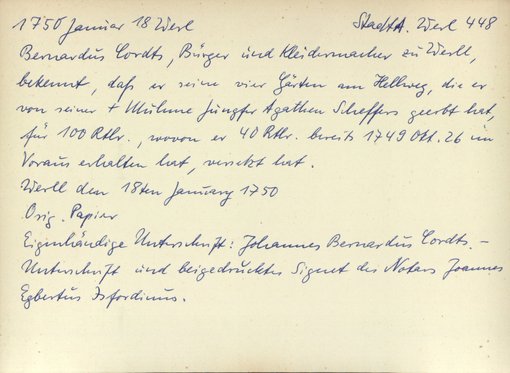 1750 Januar 18 Werl StadtA. Werl 448
Bernardus Cordts, Bürger und Kleidermacher zu Werll,
bekennt, daß er seine vier Gärten am Hellweg, die er
von seiner + Muhme Jungfer Agathen Scheffers geerbt hat,
für 100 Rtlr., wovon er 40 Rtlr. bereits 1749 Okt. 26 im
Voraus erhalten hat, versetzt hat.
Werll den 18ten January 1750
Orig. Papier
Eigenhändige Unterschrift: Johannes Bernardus Cordts. -
Unterschrift und beigedrucktes Signet des Notars Joannes
Egbertus Isfordinus.